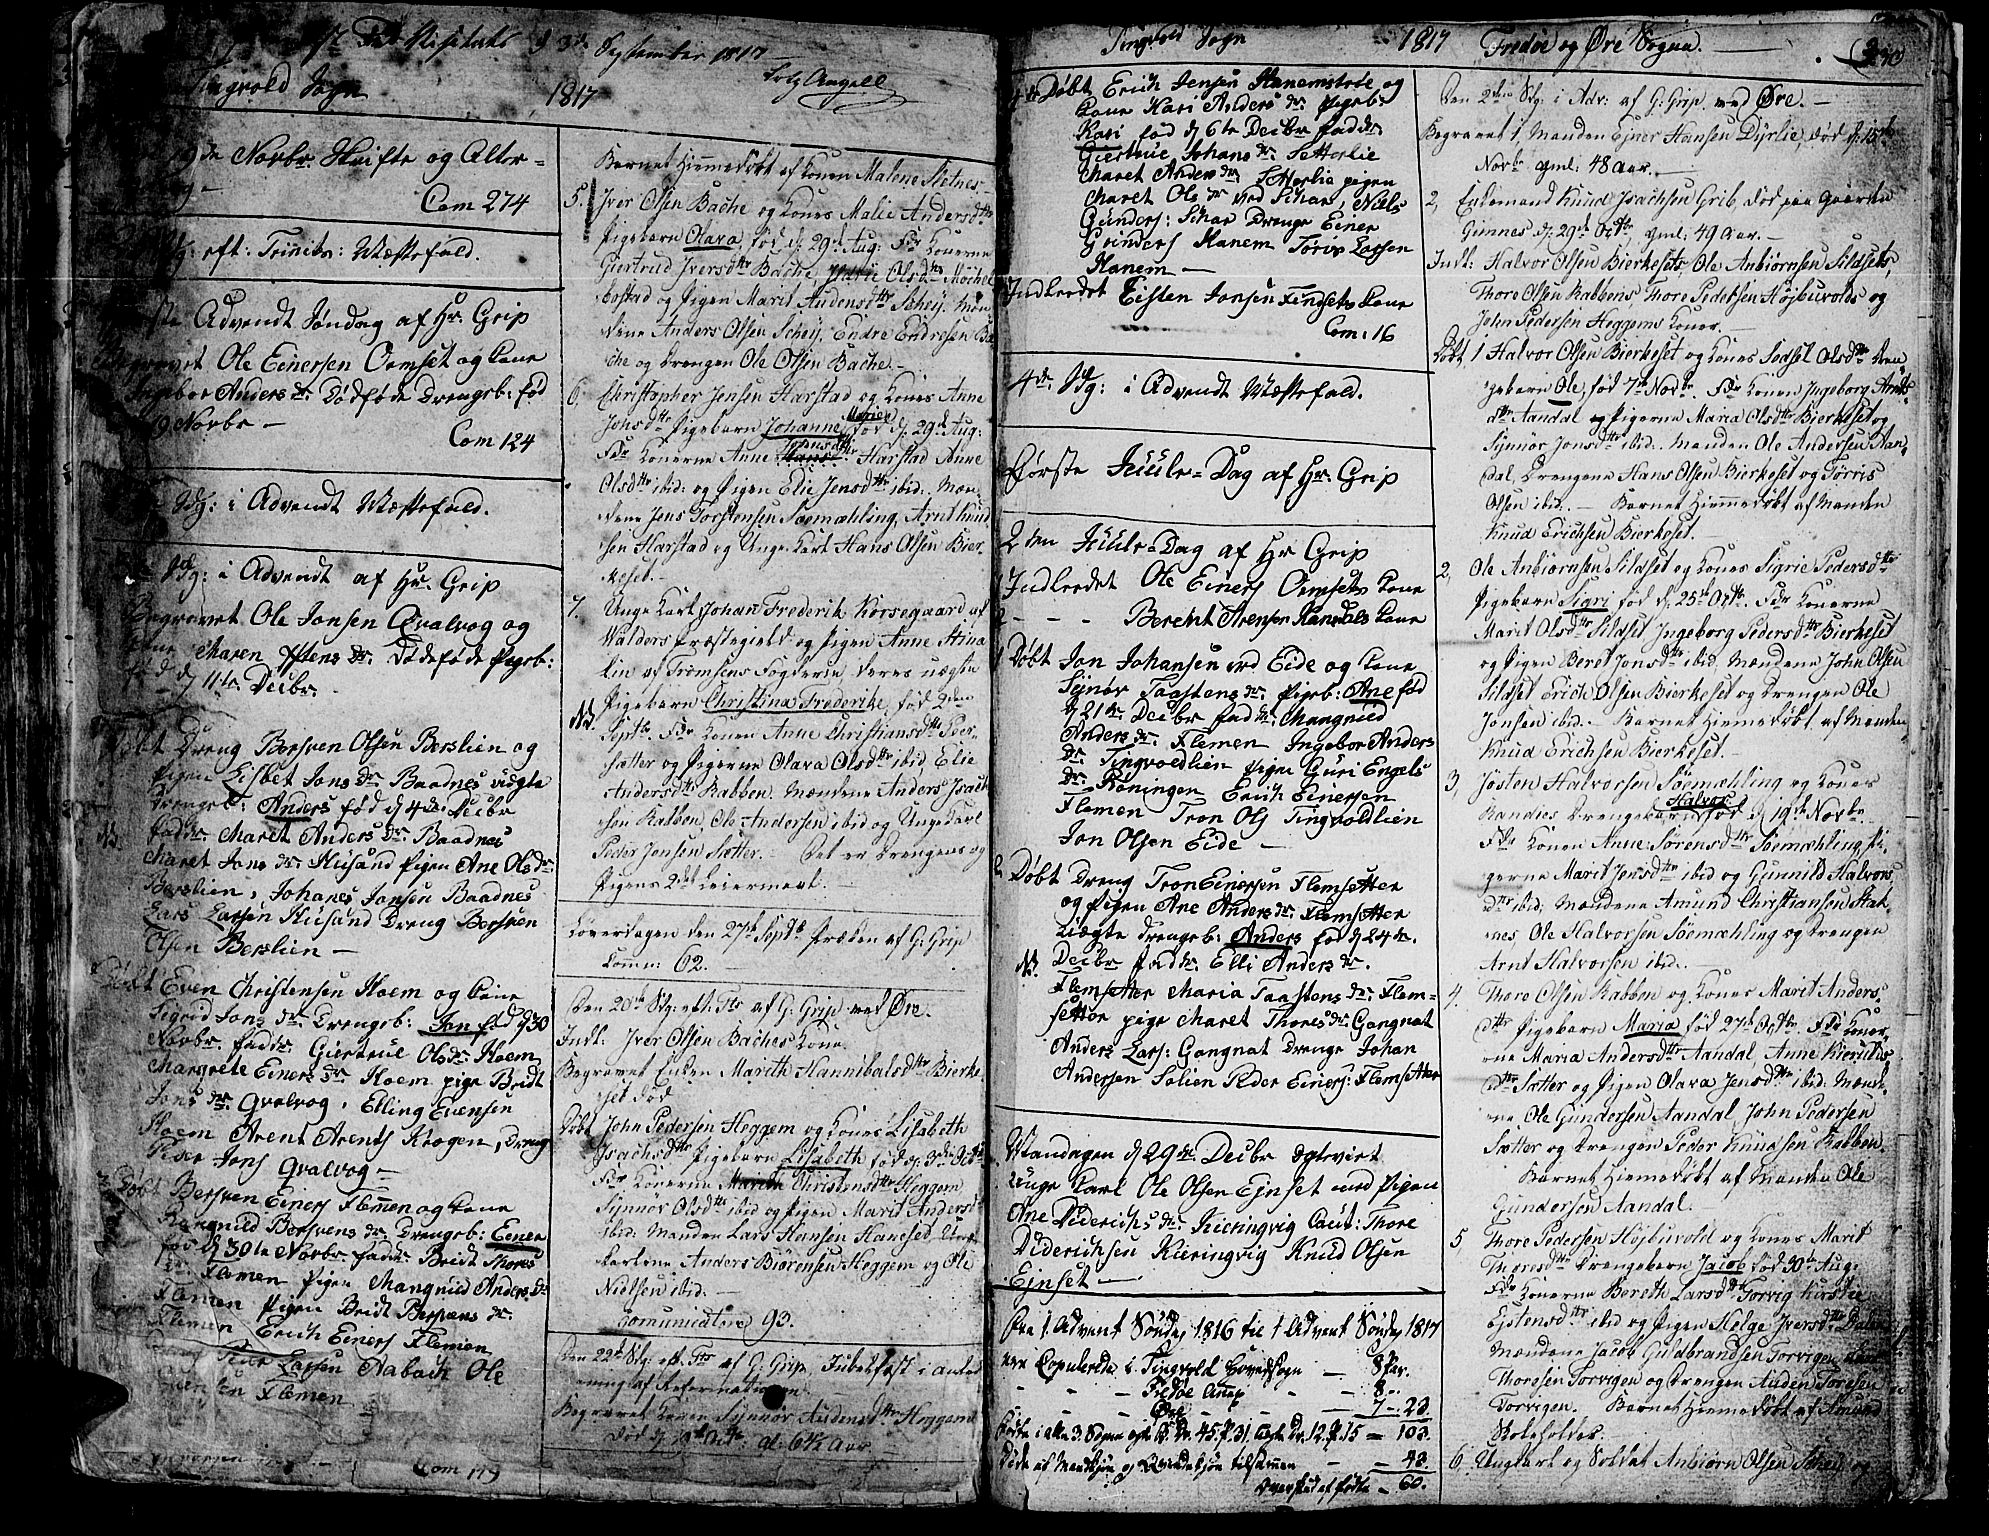 September 1817
Tingvold Sogn 1817
de Novbr Skrifte og Alter=
Com 274
eft: Trinits: Mæssefald.
Advendt Søndag af Hr. Grip
Ole Einersen Ormset og Kone
Anders dr. Dødføde Drengeb: fød
9 Novbr —
Com 124
Sdg: i Advendt Mæssefald.
Sdg: i Advendt af Hr. Grip
Begravet Ole Jonsen Qvalvog og
Kone Maren dr. Dødeføde Pigeb:
fød d 11te Decbr.
Døbt Dreng Bersven Olsen Berslien og
Pigen Lisbet Jons dr Baadnes uægte
Drengeb: Anders fød d 4de Decbr
Faddr. Maret Anders dr. Baadnes
Maret Jons dr Husand Pigen Ane Ols dr
Berslien, Johanes Jonsen Baadnes
Lars Larsen Husand Dreng Bersven
Olsen Berslien —
Døbt Even Christensen Hoem og Kone
Sigrid Jons dr. Drengeb: Jon fød d 30
Novbr. Faddr. Giertrue Ols dr Hoem
Margrete Einers dr Hoem pige Bridt
Jons dr. Qvalvog, Elling Evensen
Hoem Arent Arents Krogen, Dreng
Peder Jons Qvalvog —
3 Døbt Bersven Einers Flemen og Kone
Rangnild Bersvens dr. Drengeb: Einer
fød d 30te Novbr Faddr. Bridt Thores
dr. Flemen Pigen Mangnild Anders dr
Flemen Pigen Bridt Bersvens dr.
Flemen Erich Einers Flemen
Peder Larsen Aabach Ole
Flemen
Com 179
Barnet hiemmedøbt af Konen Malene Sletnes
5. Iver Olsen Bache og Kones Malie Andersdtr
Pigebarn Olava, fød d: 29d Aug: Fdr Konerne
Giertrud Iversdtr Bache, Marie Olsdtr
bostad og Pigen Marit Audensdtr Schey. Mæn
dene Anders Olsen Schey, Endre Endresen Ba
che og Drengen Ole Olsen Bache. —
6, Christopher Jensen Harstad og Kones Anne
Jonsdtr Pigebarn Johanne Marie fød d: 29d Aug:
Fdr Konerne Anne Harstad Anne
Olsdtr ibid: og Pigen Elie Jensdtr ibid. Mæn
dene Jens Torstensen Søemæhling, Arnt Knud
sen Harstad og Unge Karl Hans Olsen Bier
keset. —
7. Unge Karl Johan Frederik Korsegaard af
Walders Præstegield og Pigen Anne Stina
lin af Tromsens Fogderie, deres uægte
Pigebarn Christina Frederike, fød 2den
Septbr. Fdr Konen Anne Christiansdtr
sætter og Pigerne Olava Olsdtr ibid Elie
Andersdtr Rabben. Mændene Anders Isach
sen Rabben, Ole Andersen ibid og Unge Karl
Peder Jonsen Sætter. Det er Drengens og
Pigens 2det Leiermaal. —
Løverdagen den 27de Septbr Præken af G: Grip
Comm: 62. —
Den 20de Sdg. eft: Tr: af G: Grip ved Øre.
Indl: Iver Olsen Baches Kone
Begravet Enken Marith Hannibalsdtr Bierke
set fød
Døbt John Pedersen Heggem og Kones Lisabeth
Isachsdtr Pigebarn Lisabeth fød d: 3die
Fdr Konerne Marith Christensdtr Heggem
Synnør Olsdtr ibid og Pigen Marit Andersd
ibid: Manden Lars Hansen Hanesed, Unge
karlene Anders Biørensen Heggem og Ole
Nielsen ibid. —
Comunicatere 93.
Den 22de Sdg. eft. Tr: af G: Grip, Jubelfæst i anled
ning af Reformationen.
Begravet Konen Synnør Audensdtr Heggem
død d: gl: 64 Aar. —
Tingvold Sogn 1817 Fredøe og Øre Sogne. —
Døbt Erich Jensen Hanemstrøe og
Kone Kari Anders dr. Pigeb:
Kari fød d 6te Decbr Faddr
Giertrue Johans dr. Setterlie
Maret Anders dr. Setterlie pigen
Maret Ols dr ved Schar, Niels
Gunders: Schar Drenge Einer
Gunders Hanem Torip Larsen
Hanem —
Indleedet Eisten Jonsen Findsets Kone
Com: 16
4de Sdg: i Advendt Mæssefald.
Første Juule=Dag af Hr. Grip
2den Juule=Dag af Hr Grip
Indleedet Ole Einers Ormsets Kone
2 - - - Berent Arensen Kanestrøms Kone
1 Døbt Jon Johansen ved Eide og Kone
Synør Taastens dr. Pigeb: Ane fød
d 21de Decbr Faddr. Mangnild
Anders dr. Flemen Ingebor Anders
dr. Tingvoldlien Pigen Guri Engels
dr. Röningen Erich Einersen
Flemen Tron Ols Tingvoldlien
Jon Olsen Eide —
2 Døbt Dreng Tron Einersen Flemsetter
og Pigen Ane Anders dr. Flemsetter
Uægte Drengeb: Anders fød d 24de.
Decbr Faddr. Elli Anders dr.
Flemsetter Maria Taastens dr. Flem=
setter pige Maret Thores dr Gangnat
Anders Lars: Gangnat Drenge Johan
Andersen Solien Peder Einers: Flemsetter
Mandagen d 29de. Decbr Egteviet
unge Karl Ole Olsen Ejnset med Pigen
Ane Diderichs dr. Kieringvig Caut: Thore
Diderichsen Kieringvig Knud Olsen
Ejnset —
Fra 1 Advent Søndag 1816 til 1 Advent Søndag 1817
ere Copulerede i Tingvold Hovedsogn — 8 par.
- - - Fredøe Annex - - 8 -
- - Øre - - - 7 - 23
Fødte i alle 3 Sogne 45. P. 31. 12. P. 15 = 103.
Døde af Mandkjøn og Qvindekjøn tilsammen — 43
Overskud af fødte — 60.
Den 2den Sdg. i Adv: af G: Grip ved Øre. —
Begravet 1. Manden Ejner Hansen Dyrlie, død d: 15de
Novbr gml: 48 Aar. —
2, Enkemand Knud Isachsen Grib død paa Gaarden
Gimnes d: 29de Octbr, gml: 49 Aar. —
Indl: Halvor Olsen Bierkesets, Ole Anbiørnsen Sildsets,
Thore Olsen Rabbens Thore Pedersen Højbuvolds og
John Pedersen Heggems Koner. —
Døbt 1 Halvor Olsen Bierkeset og Kones Sidsel Olsdtr Dren
gebarn Ole, fød 7de Novbr. Fdr Konen Ingeborg Arnts
dtr Aandal og Pigerne Maria Olsdtr Bierkeset og
Synnør Jonsdtr ibid. Manden Ole Andersen Aan
dal, Drengene Hans Olsen Bierkeset og Torris
Olsen ibid. — Barnet hiemmedøbt af Manden
Knud Erichsen Bierkeset. —
2, Ole Anbiørnsen Sildset og Kones Sigrie Pedersdtr
Pigebarn Sigri fød d: 25de Octbr. Fdr Konerne
Marit Olsdtr Sildset Ingeborg Pedersdtr Bierkeset
og Pigen Beret Jonsdtr ibid. Mændene John Olsen
Sildset Erich Olsen Bierkeset og Drengen Ole
Jonsen ibid. — Barnet hiemmedøbt af Manden
Knud Erichsen Bierkeset. —
3, Josten Halvorsen Søemæhling og Kones
Randies Drengebarn Halvor fød d 19de Novbr
Fdr Konen Anne Sørensdtr Søemæhling, Pi
gerne Marit Jensdtr ibid og Gunnild Halvors
dtr ibid, Mændene Amund Christiansen
nes, Ole Halvorsen Søemæhling og Drengen
Arnt Halvorsen ibid. —
4. Thore Olsen Rabben og Kones Marit Anders
dtr Pigebarn Maria fød 27de Octbr. Fdr Koner
ne Maria Andersdtr Aandal, Anne
dtr Sætter og Pigen Olava Jensdtr ibid. Mænde
ne Ole Gundersen Aandal John Pedersen
Sætter og Drengen Peder Knudsen Rabben.
Barnet hiemmedøbt af Manden Ole
Gundersen Aandal.
5, Thore Pedersen Højbuvold og Kones Marit
Thoresdtr Drengebarn Jacob fød 30te Aug:
Fdr Konerne Bereth Larsdtr Torvig
Ejstensdtr ibid og Pigen Helge Iversdtr
Mændene Jacob Guldbrandsen Torvigen
Thoresen Torvigen og Drengen Auden Toresen
Torvigen. Barnet hiemmedøbt af Amund
Skoleholder.
6. Ungkarl og Soldat Anbiørn Olsen